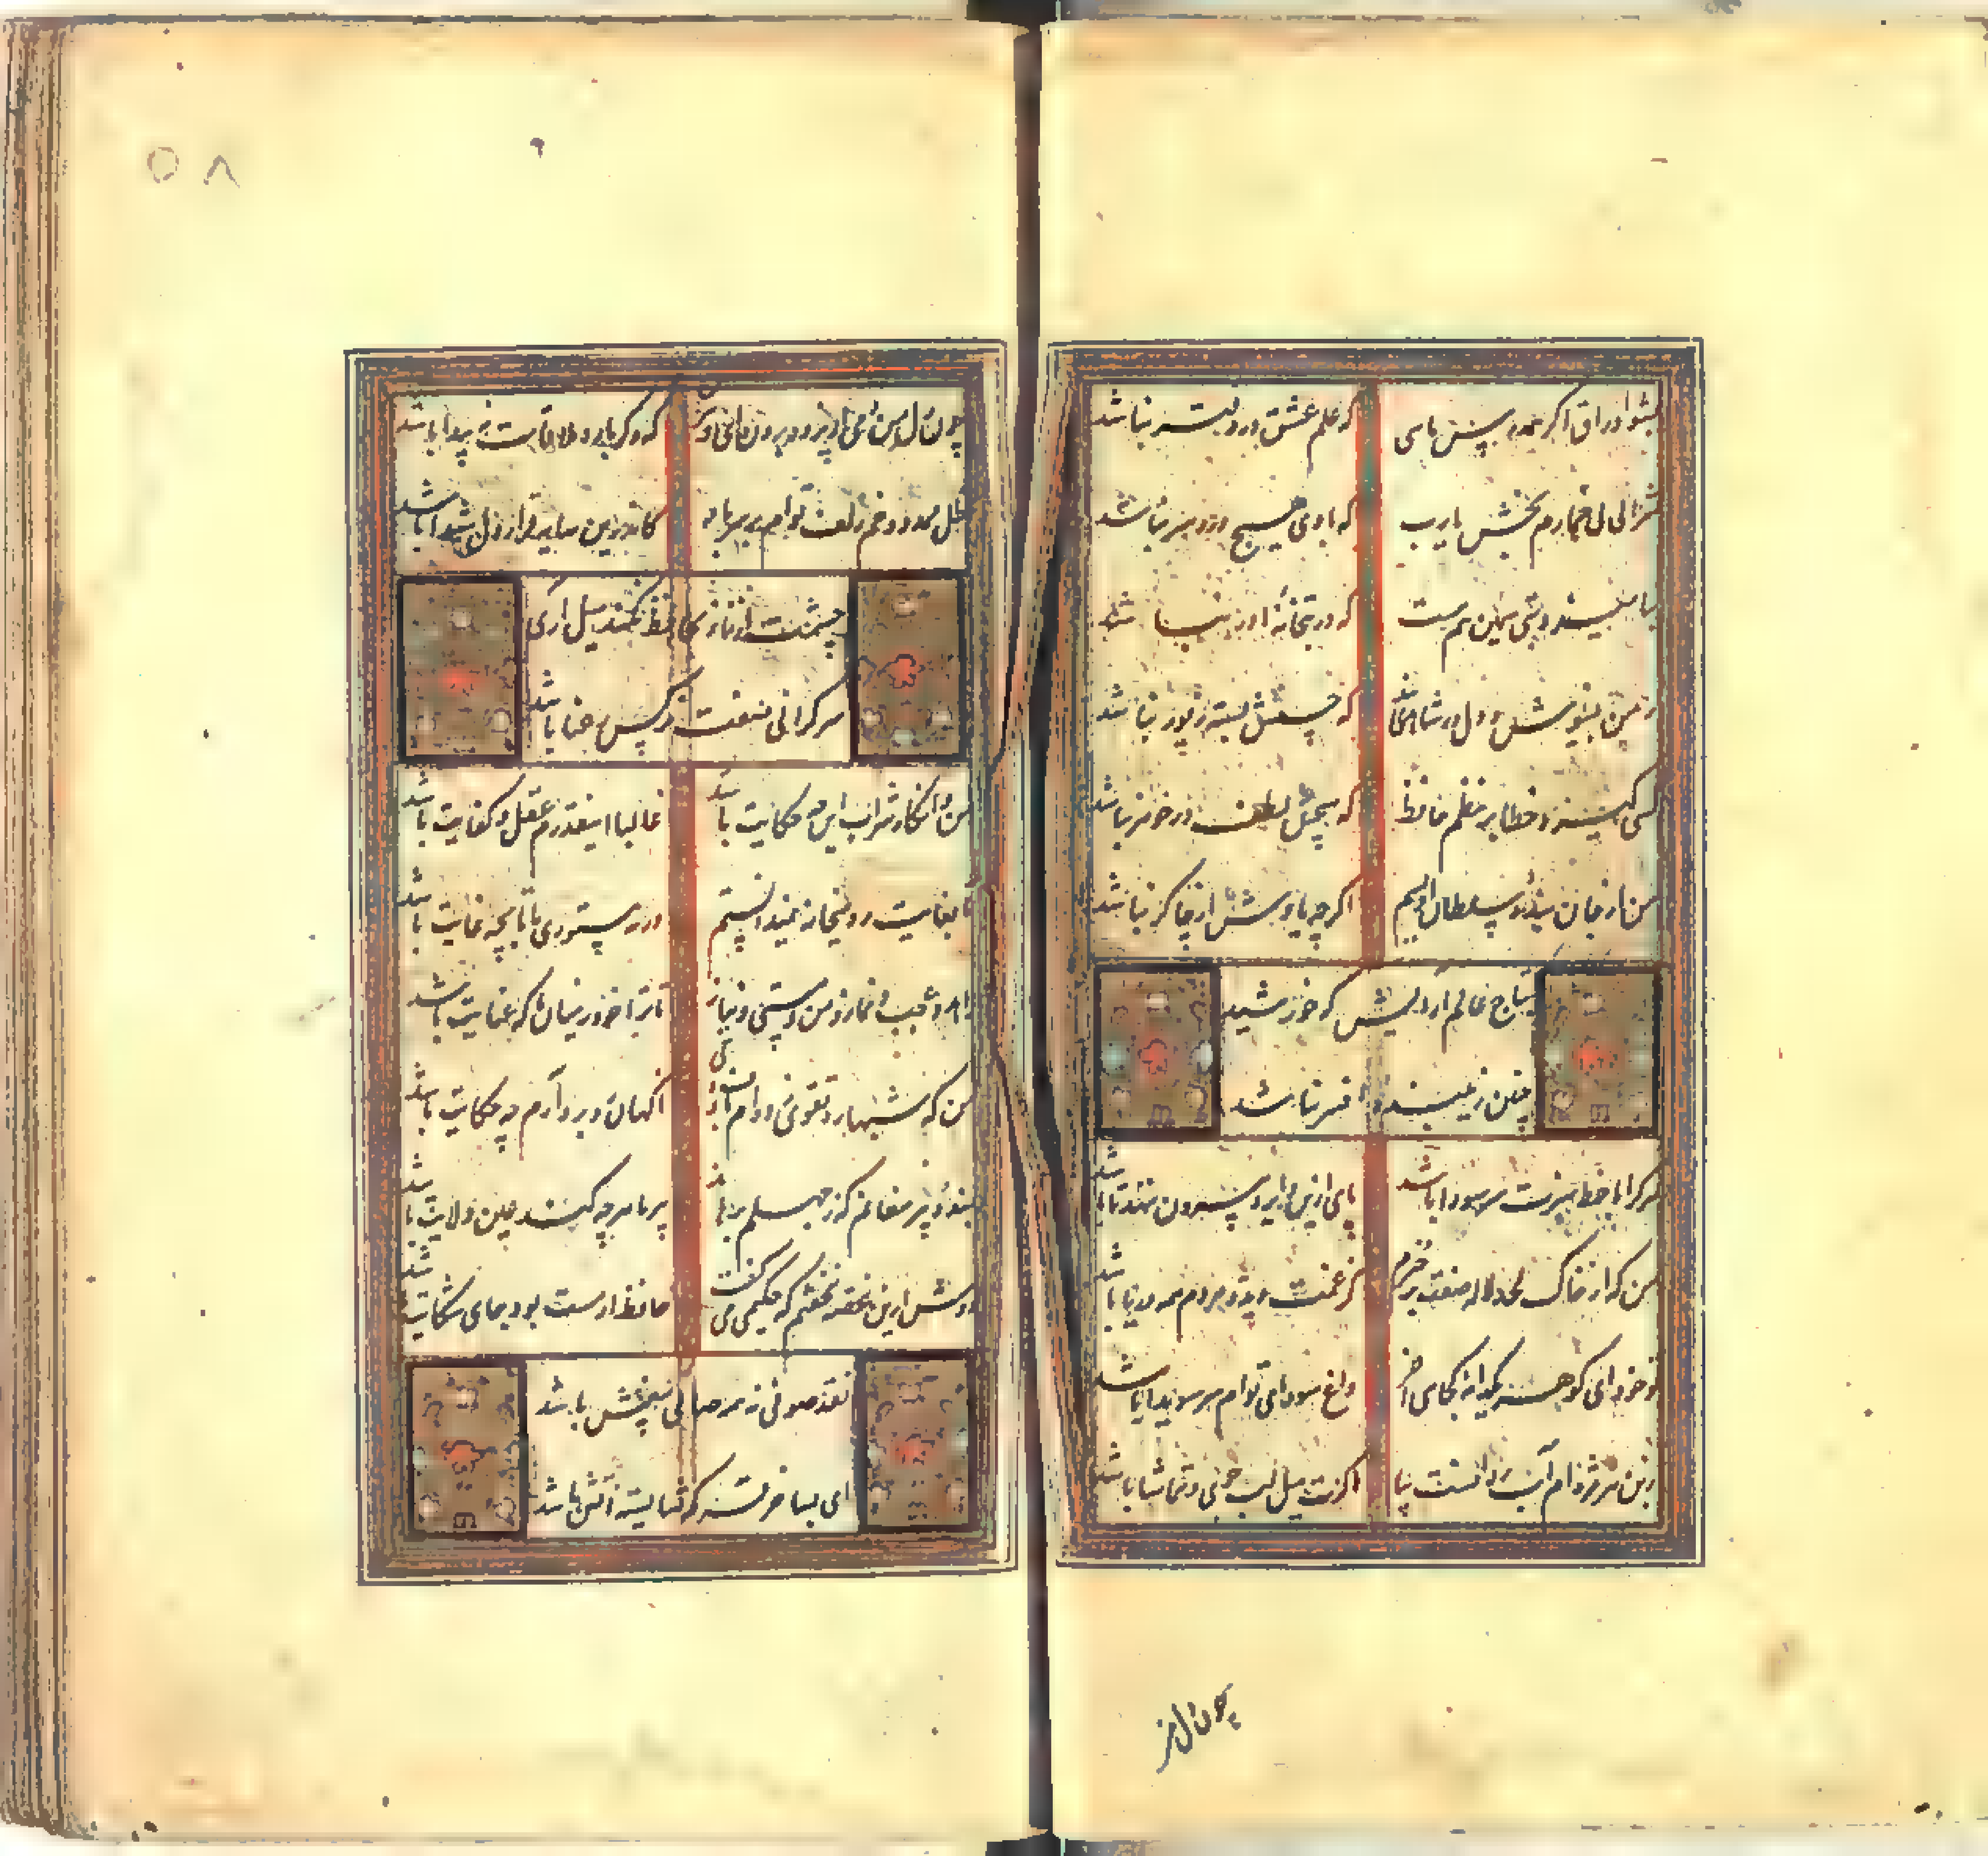 بشو اوراق اگر همدرس مایی که علم عشق در دفتر نباشد
شرابی بی خمارم بخش یارب که با وی هیچ درد سر نباشد
بیا
که در بتخانه آزر نباشد
ز من بنیوش و دل در شاهدی بند که حسنش بسته زیور نباشد
کسی گیرد خطا بر نظم حافظ که هیچش لطف در گوهر نباشد
من از جان بنده سلطان اویسم اگر چه یادش از چاکر نباشد
بتاج عالم آرایش که خورشید
چنین زیبنده افسر نباشد
هر که را با خط سبزت سر سودا باشد پای ازین دایره بیرون ننهد تا باشد
من که از خاک لحد لاله صفت برخیزم
داغ سودای توام سر سویدا باشد
تو خود ای گوهر یکدانه کجایی آخر کز غمت دیده مردم همه دریا باشد
از بن هر مژه ام آب روانست بیا اگرت میل لب جوی و تماشا باشد
چون دل من
۵۸
چون دل من دمی از پرده برون آی و درآ که دگر باره ملاقات نه پیدا باشد
ظل ممدود خم زلف توام بر سر باد کاندرین سایه قرار دل شیدا باشد
چشمت از ناز بحافظ نکند میل آری
سرگرانی صفت نرگس رعنا باشد
من و انکار شراب این چه حکایت باشد غالبا اینقدرم عقل و کفایت باشد
تا بغایت ره میخانه نمیدانستم ورنه مستوری ما تا بچه غایت باشد
زاهد و عجب و نماز و من و مستی و نیاز تا ترا خود ز میان با که عنایت باشد
من که شبها ره تقوی زده ام با دف و چنگ ناگهان سر بره آرم چه حکایت باشد
بنده پیر مغانم که ز جهلم برهاند پیر ما هر چه کند عین ولایت باشد
دوش ازین غصه نخفتم که حکیمی می گفت حافظ ار مست بود جای شکایت باشد
نقد صوفی نه همه صافی بیغش باشد
ای بسا خرقه که شایسته آتش باشد